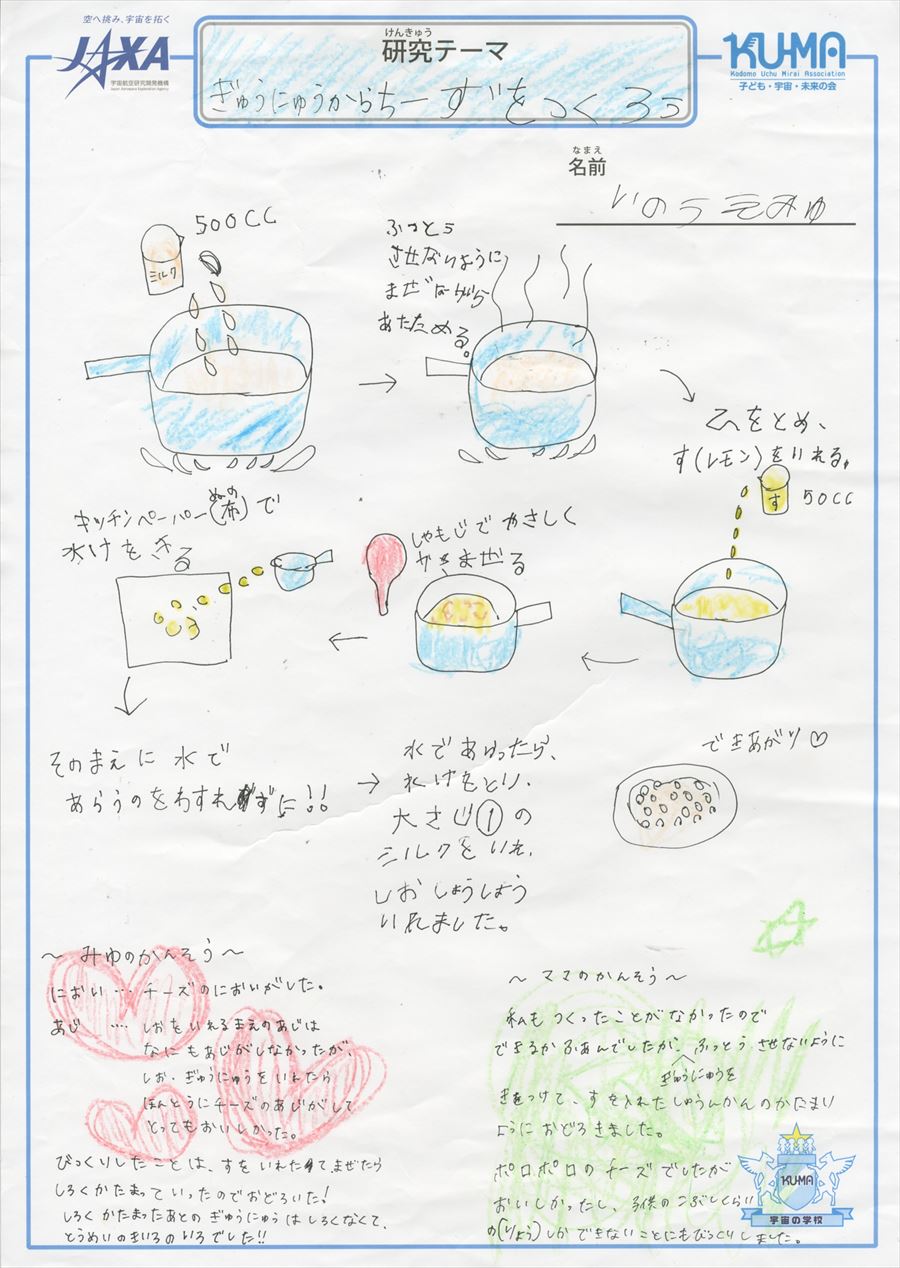 空へ挑み、宇宙を拓く
JAXA
宇宙航空研究開発機構
Japan Aerospace Exploration Agency
けんきゅう
研究テーマ
ぎゅうにゅうからちーずをつくろう
KUMA
Kodomo Uchu Mirai Association
子ども・宇宙・未来の会
なまえ
名前
いのうえみゆ
500CC
ミルク
ふっとう
させないように
まぜながら
あたためる。
ひをとめ、
す(レモン)をいれる。
す
50CC
しゃもじでやさしく
かきまぜる
キッチンペーパー(布)で
ぬの
水けをきる
そのまえに水で
あらうのをわすれずに!!
水であらったら、
水けをとり、
大さじ①の
ミルクをいれ、
しおしょうしょう
いれました。
できあがり♡
~みゆのかんそう~
におい…チーズのにおいがした。
あじ…しおをいれるまえのあじは
なにもあじがしなかったが、
しお・ぎゅうにゅうをいれたら
ほんとうにチーズのあじがして
とってもおいしかった。
びっくりしたことは、すをいれてまぜたら
しろくかたまっていったのでおどろいた!
しろくかたまったあとのぎゅうにゅうはしろくなくて、
とうめいのきいろのいろでした!!
~ママのかんそう~
私もつくったことがなかったので
できるかふあんでしたが、ふっとうさせないように
ぎゅうにゅうを
きをつけて、すを入れたしゅうんかんのかたまり
ようにおどろきました。
ポロポロのチーズでしたが
おいしかったし、子供のこぶしくらい
の(りょう)しかできないことにもびっくりしました。
KUMA
宇宙の学校